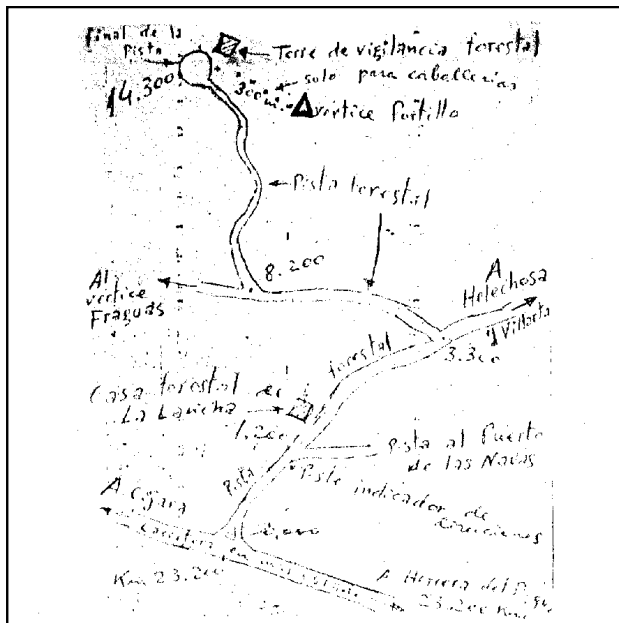 final de la
pista
Torre de vigilancia forestal
solo para caballerias
300 m.
14.300
vértice Portillo
Pista forestal
8.200
Al
vértice
Fraguas
A
Helechosa
y Villarta
3.300
forestal
Casa forestal de
La Lancha
1.200
Pista al Puerto
de las Navas
Pista
Poste indicador de
direcciones
A Cijara
0,000
Carretera en mal estado
A Herrera del Duque
Km 23.200
23.200 Km